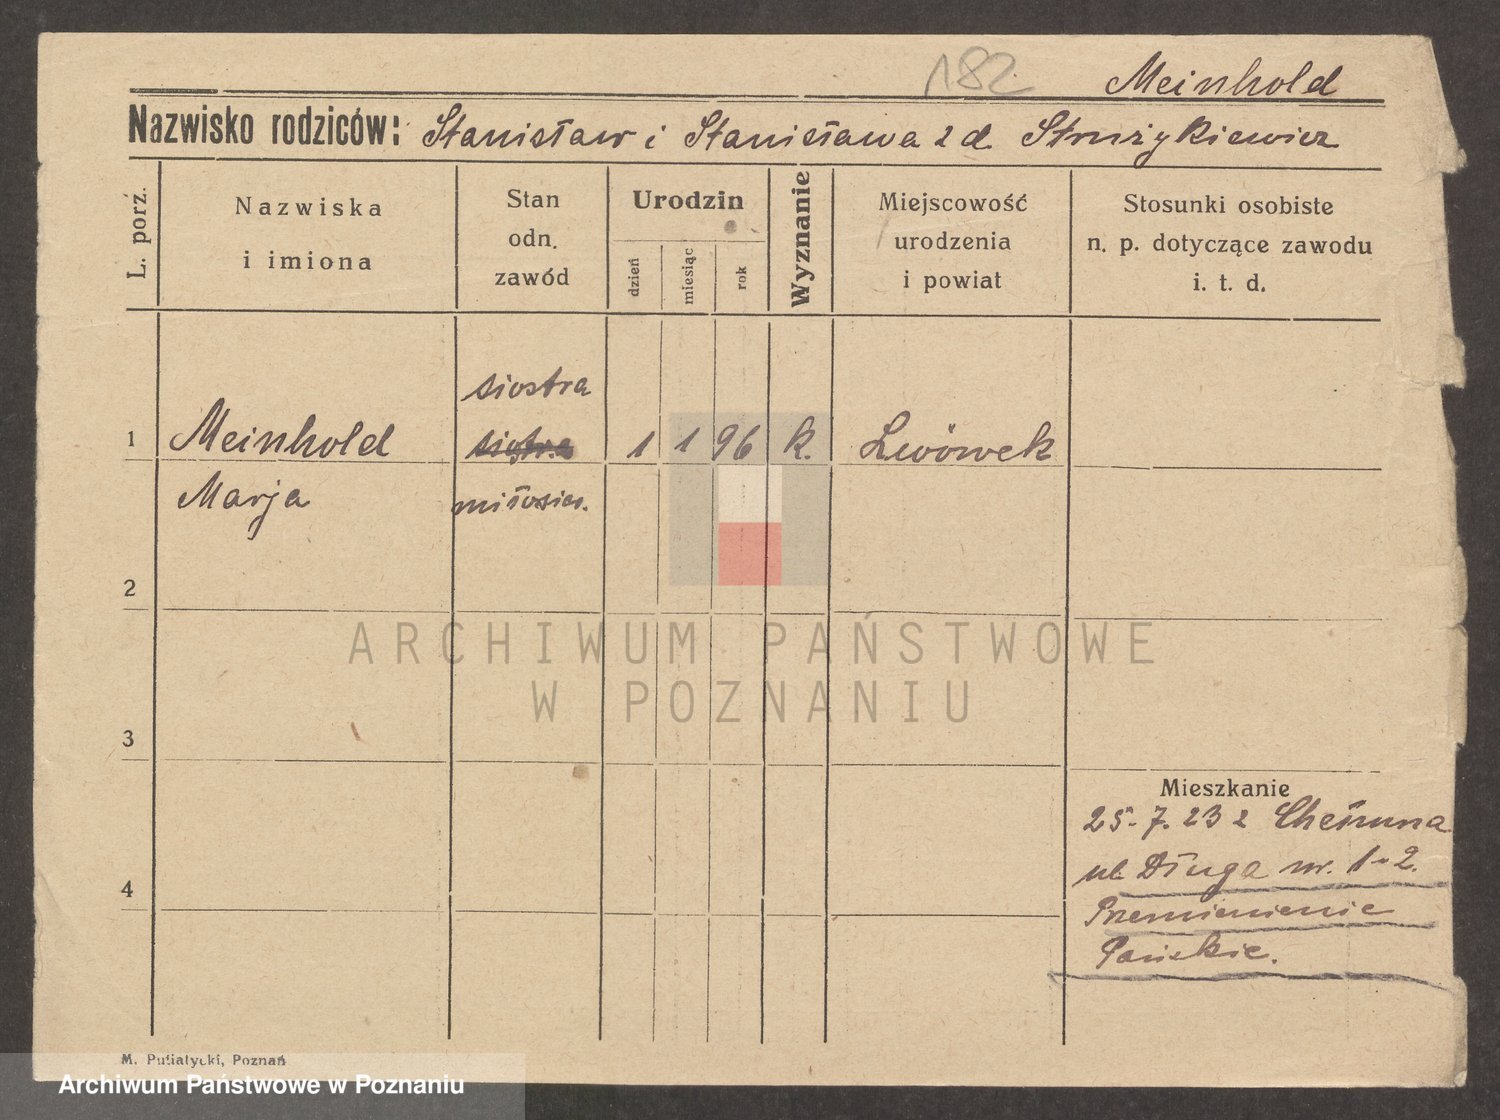 182
Meinhold
Nazwisko rodziców: Stanisław i Stanisława z d. Strużykiewicz
L. porź.
Nazwiska i imiona
Stan odn. zawód
Urodzin
dzień
miesiąc
rok
Wyznanie
Miejscowość urodzenia i powiat
Stosunki osobiste n. p. dotyczące zawodu i. t. d.
siostra
1 Meinhold 1 1 96 k. Lwówek
Marja miłosier.
2
3
4
Mieszkanie
25.7.23 z Chełmna
ul. Długa nr. 1-2.
Przemienienie
Pańskie.
ARCHIWUM PAŃSTWOWE
W POZNANIU
M. Putiatycki, Poznań
Archiwum Państwowe w Poznaniu